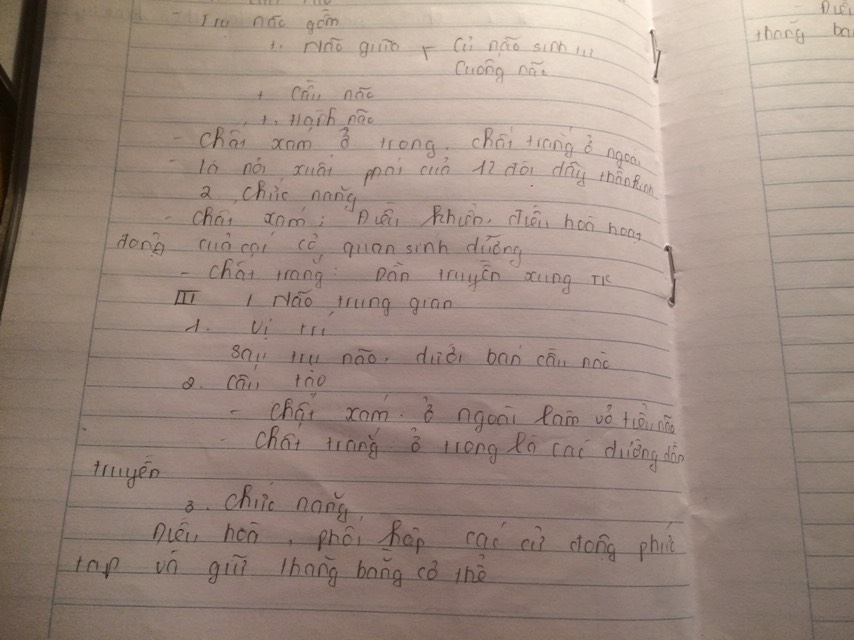 - Trụ não gồm
+. Não giữa { Củ não sinh tư
Cuống não
+ Cầu não
+. Hành não
- Chất xám ở trong. chất trắng ở ngoài
- là nơi xuất phát của 12 đôi dây thần kinh
2 chức năng
- Chất xám: Điều khiển, điều hoà hoạt
động của các cơ quan sinh dưỡng
- Chất trắng: Dẫn truyền xung TK
III / Não trung gian
1. Vị trí
Sau trụ não, dưới bán cầu não
2. Cấu tào
- Chất xám ở ngoài làm vỏ tiểu não
- Chất trắng ở trong là các đường dẫn
truyền
3. Chức năng
Điều hoà, phối hợp các cử động phức
tạp và giữ thăng bằng cơ thể
Điều
thăng bằ